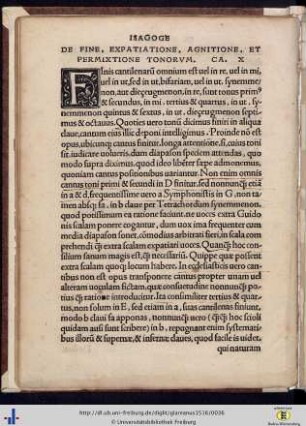 ISAGOGE
DE FINE, EXPATIATIONE, AGNITIONE, ET
PERMIXTIONE TONORVM. CA. X
FInis cantilenarũ omnium est uel in re, uel in mi,
uel in ut, sed in ut, bifariam, uel in ut. synemme-
non, aut diezeugmenon, in re, sunt tonus primꝰ
& secundus, in mi. tertius & quartus, in ut.
synemmenon quintus & sextus, in ut. diezeugmenon septi-
mus & octauus. Quoties uero tantũ dicimus finiri in aliqua
claue, cantum eius illic deponi intelligimus. Proinde nõ est
opus, ubicunq; cantus finitur, longa attentione, si, cuius toni
sit, iudicare uolueris, dum diapason speciem attendas, quo
modo supra diximus, quod ideo libẽter sæpe admonemus,
quoniam cantus positionibus variantur. Non enim omnis
cantus toni primi & secundi in D finitur, sed nonnunꝗ̃ etiã
in a & d, frequentissime uero a Symphonistis in G, non ta-
men absq; fa. in b claue per Tetrachordum synemmenon,
quod potissimum ea ratione faciunt, ne uoces extra Guido
nis scalam ponere cogantur, dum uox ima frequenter cum
media diapason sonet, cõmodius arbitrati fieri, in scala com
prehendi ꝗ̃ extra scalam expatiari uoces. Quanꝗ̃ hoc con-
silium sanum magis est, ꝗ̃ necessariũ. Quippe quæ possent
extra scalam quoq; locum habere. In ecclesiasticis uero can-
tibus non est opus transponere cantus propter unam uel
alteram uogulam fictam, quæ consuetudine nonnunꝗ̃ po-
tius ꝗ̃ ratione introducitur. Ita consimiliter tertius & quar-
tus, non solum in E, sed etiam in a, suas cantilenas finiunt,
modo b claui fa apponas, nonnunꝗ̃ uero (ꝗ̃ꝗ̃ hoc scioli
quidam ausi sunt scribere) in b, repugnant enim systemati-
bus illorũ & supernæ, & infernæ daues, quod facile is uidet,
qui naturam
http://dl.ub.uni-freiburg.de/diglit/glareanus1516/0036
© Universitätsbibliothek Freiburg